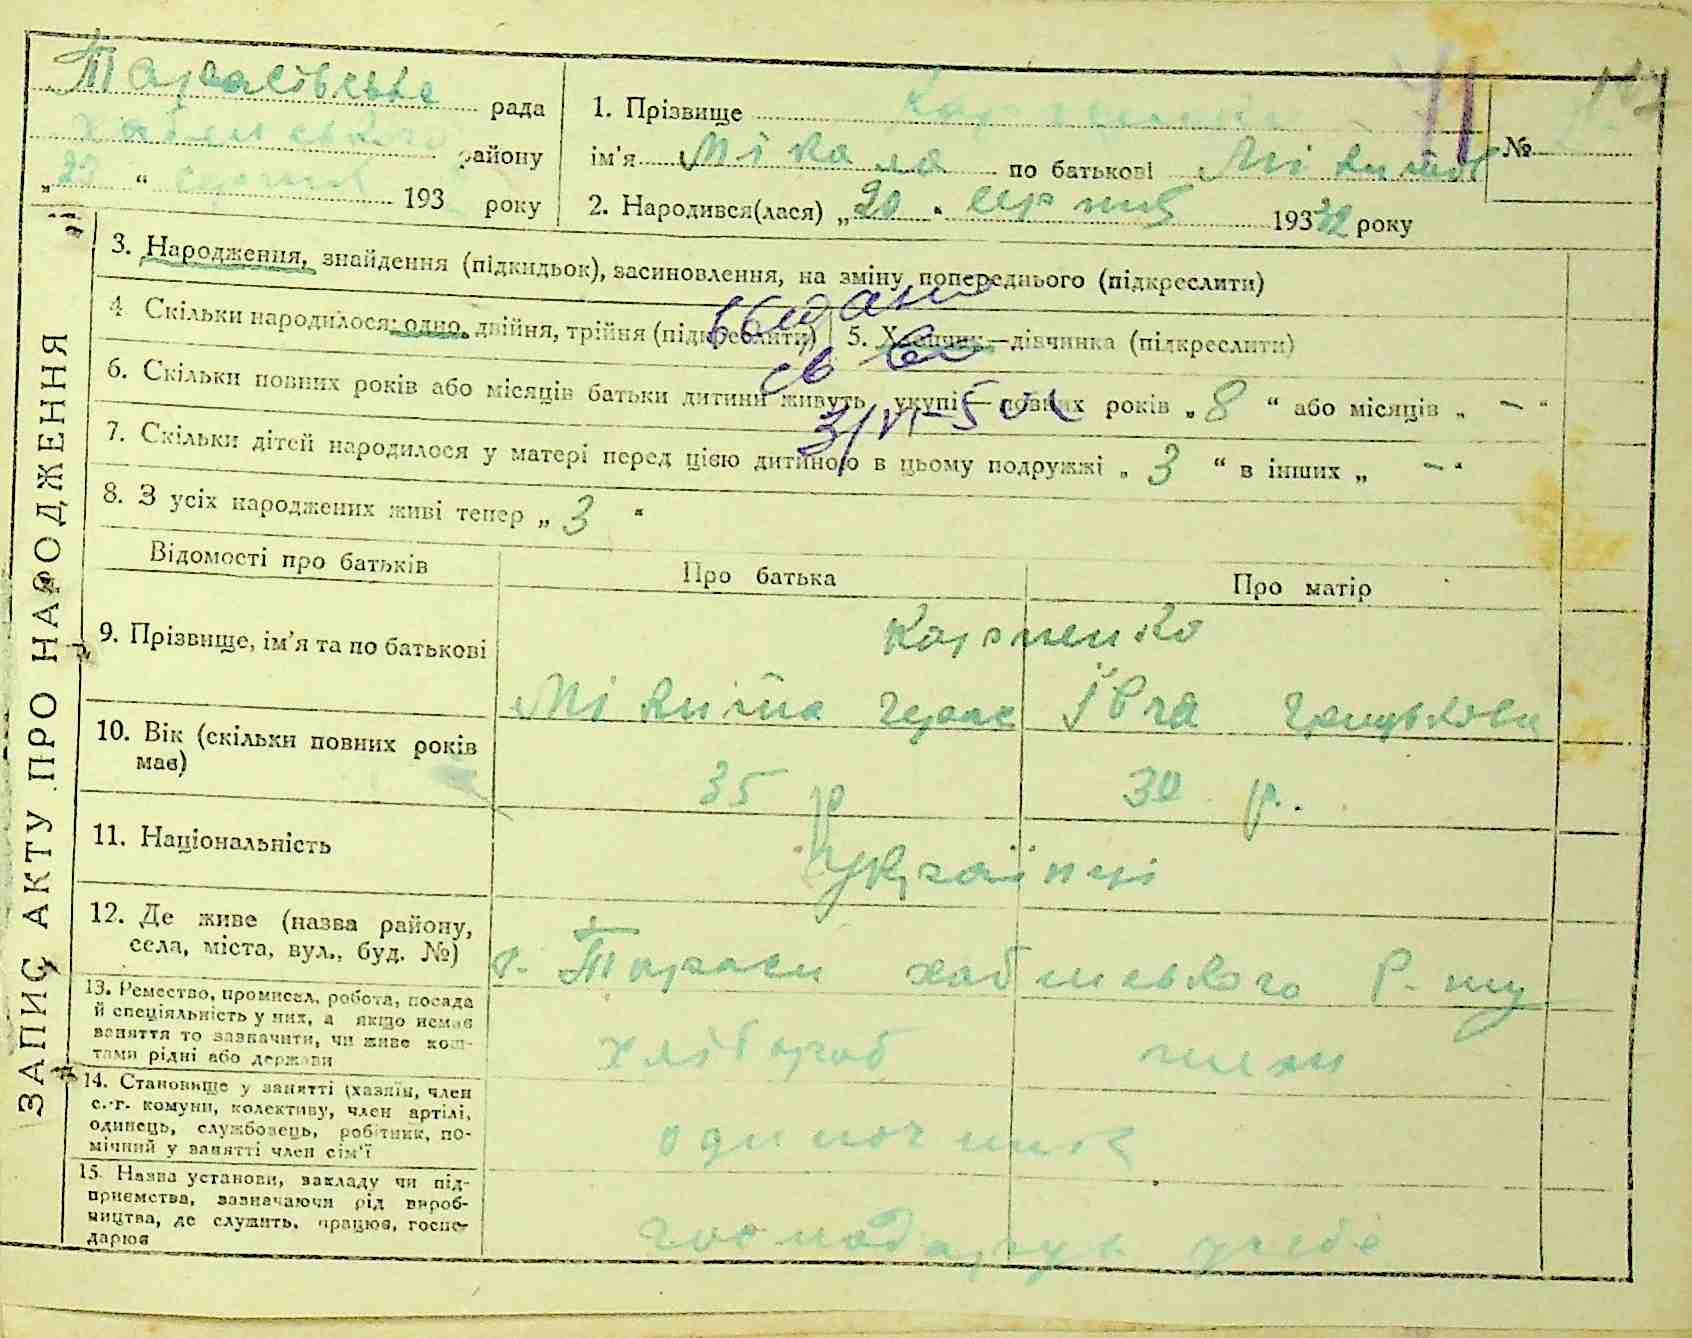 Тарасівська рада
району
„23“ серпня 193 року
1. Прізвище
ім'я Мікола по батькові Мікит
2. Народився(лася) „20“ серпня 19332 року
№
ЗАПИС АКТУ ПРО НАРОДЖЕННЯ
3. Народження, знайдення (підкидьок), засиновлення, на зміну попереднього (підкреслити)
4 Скільки народилося: одно, двійня, трійня (підкреслити)
5. Хлопчик—дівчинка (підкреслити)
6. Скільки повних років або місяців батьки дитини живуть укупі—повних років „8“ або місяців „—“
7. Скільки дітей народилося у матері перед цією дитиною в цьому подружжі „3“ в інших „—“
8. З усіх народжених живі тепер „3“
Відомості про батьків
Про батька
Про матір
9. Прізвище, ім'я та по батькові
Мікита
10. Вік (скільки повних років має)
35 р
30 р.
11. Національність
Українці
12. Де живе (назва району, села, міста, вул., буд. №)
с. Тараси Р-ну
13. Ремество, промисел, робота, посада
й спеціяльність у них, а якщо немає
заняття то зазначити, чи живе кош-
тами рідні або держави
хлібороб
14. Становище у занятті (хазяїн, член
с.-г. комуни, колективу, член артілі,
одинець, службовець, робітник, по-
мічний у занятті член сім'ї
одиночник
15. Назва установи, закладу чи під-
приємства, зазначаючи рід вироб-
ництва, де служить, працює, госпо-
дарює
господарує у себе